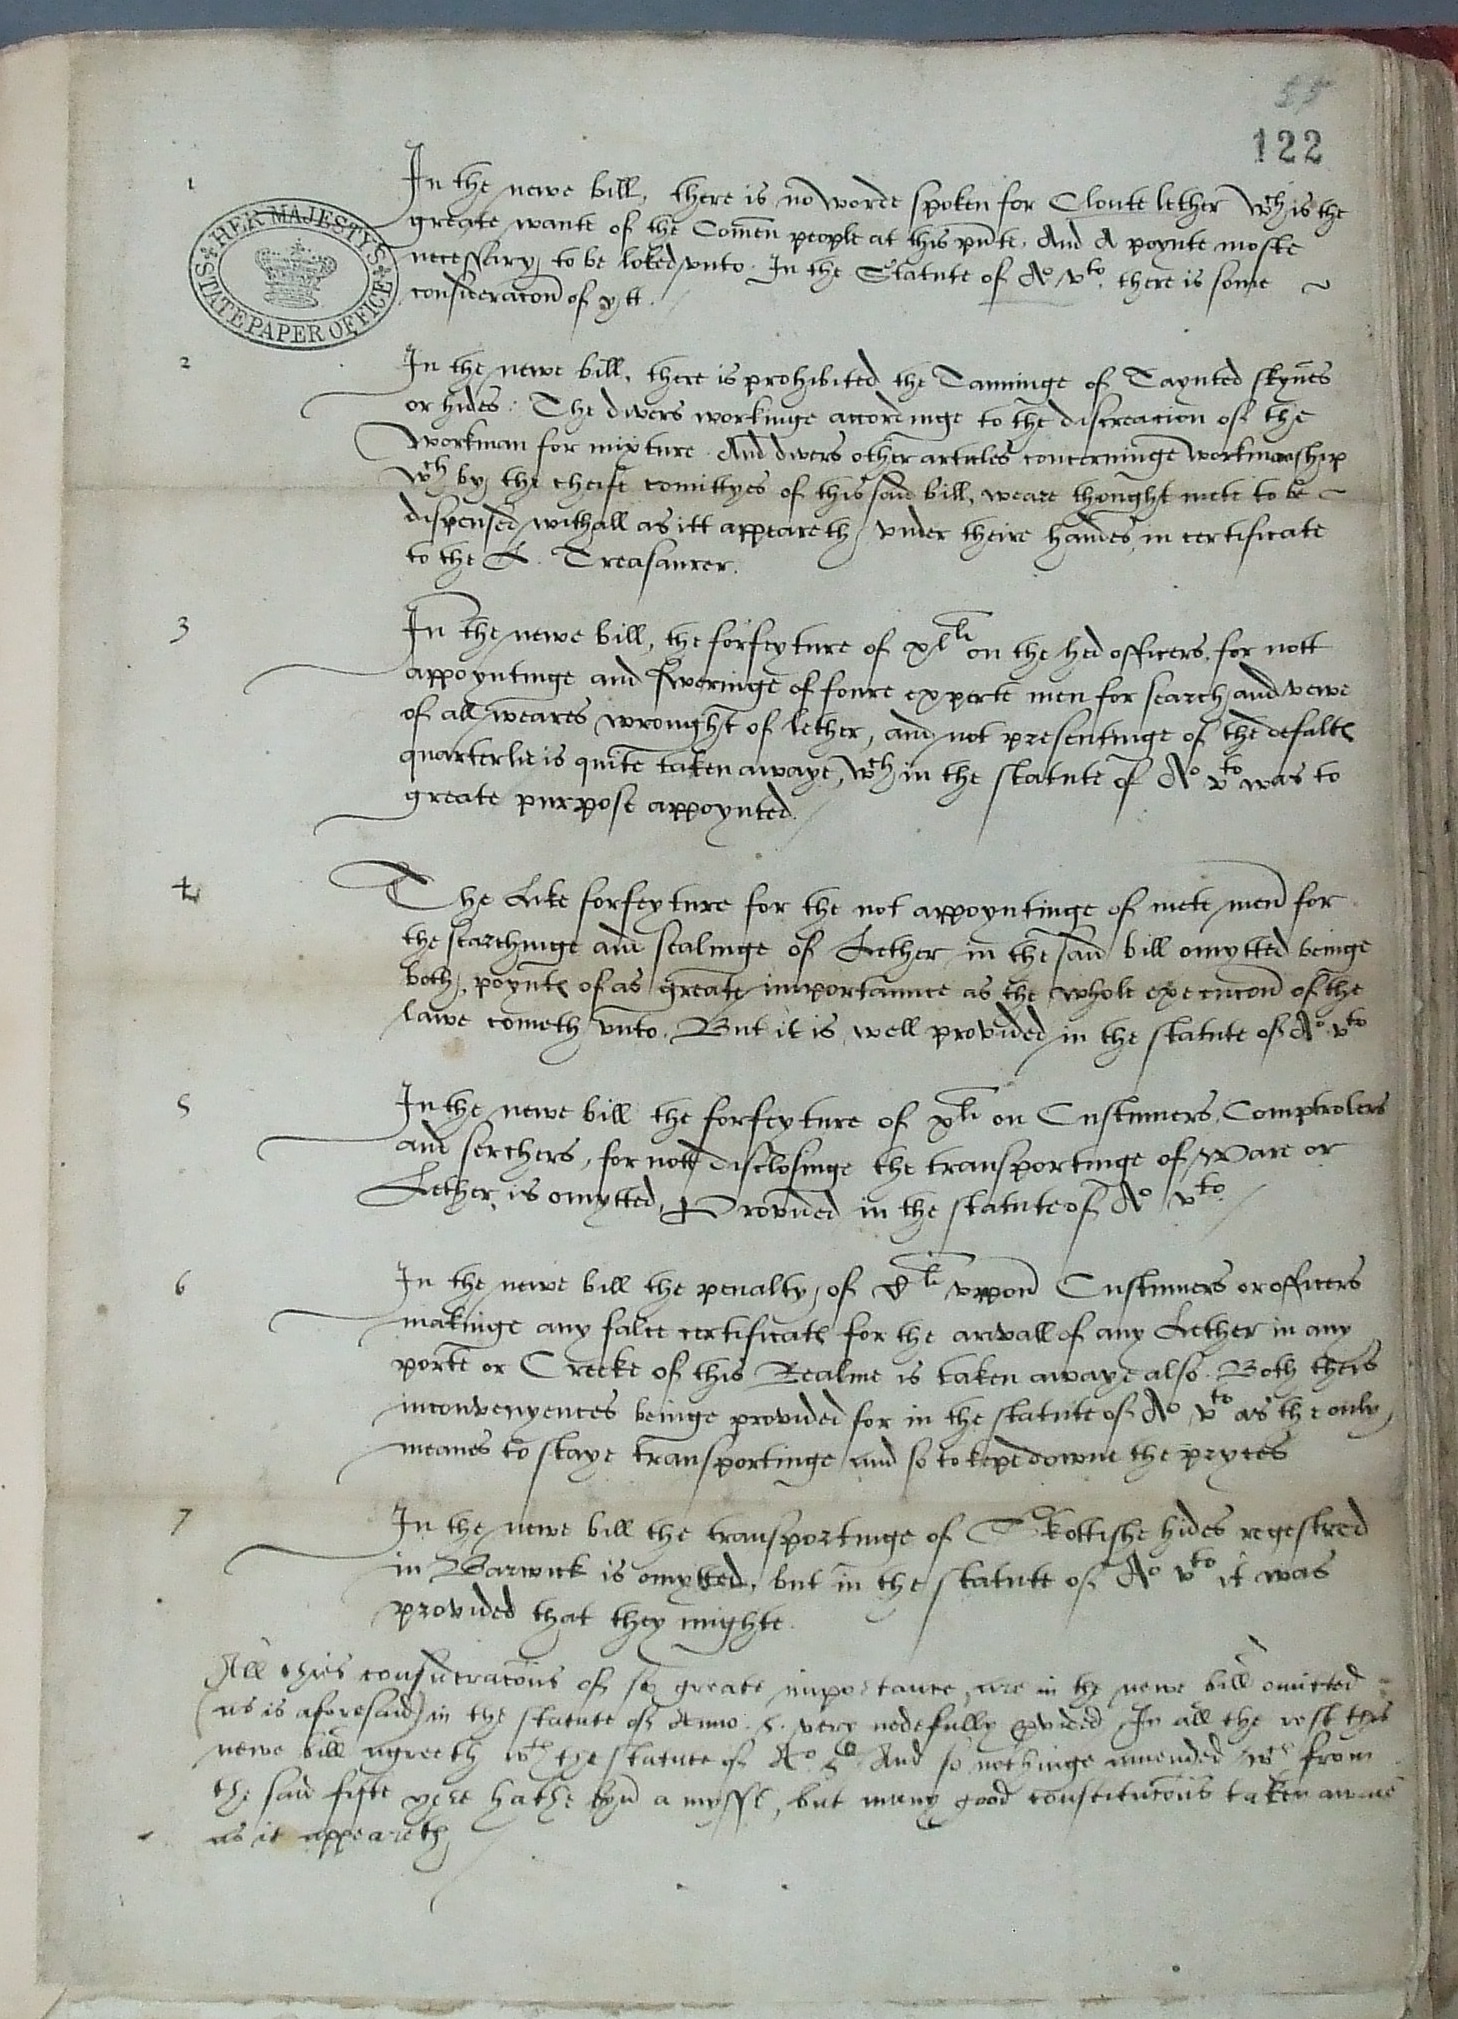 55
122
1
In the newe bill, there is no worde spoken for Cloute lether wch is the
greate wante of the Comen people at this pnte. And A poynte moste
necessary to be loked vnto. In the Statute of Ao vto there is some
consideracon of ytt.
HER MAJESTY'S STATE PAPER OFFICE
2
In the newe bill, there is prohibited the Tanninge of Taynted skynes
or hides. The divers workinge accordinge to the discreacion of the
workman for mixture. And divers other articles concerninge workmanship
wch by the cheife comittyes of this said bill, weare thought mete to be
dispensed withall as itt appeareth vnder theire handes in certificate
to the L. Treasaurer.
3
In the newe bill, the forfeyture of xlli on the hed officers, for nott
appoyntinge and sweringe of foure experte men for search and vewe
of all weares wrought of lether, and not presentinge of the defaltes
quarterlie is quite taken awaye, wch in the statute of Ao vto was to
greate purpose appoynted.
4
The Like forfeyture for the not appoyntinge of mete men for
the searchinge and sealinge of Lether in the said bill omytted beinge
both poyntes of as greate importaunce as the whole execucon of the
lawe cometh vnto. But it is well provided in the statute of Ao vto
5
In the newe bill the forfeyture of xli on Custumers, Comptrolers
and serchers, for nott disclosinge the transportinge of ware or
Lether, is omytted, Provided in the statute of Ao vto.
6
In the newe bill the penalty of Cli vppon Custumers or officers
makinge any false certificates for the arivall of any Lether in any
porte or Creeke of this Realme is taken awaye also. Both theis
inconvenyences beinge provided for in the statute of Ao vto as the only
meanes to staye transportinge and so to kepe downe the pryces
7
In the newe bill the transportinge of Skottishe hides regestred
in Barwick is omytted, but in the statute of Ao vto it was
provided that they mighte.
All thies consideracons of so greate importance, are in the newe bill omitted
(as is aforesaid) in the statute of Anno. 5. very nedefully pvided. In all the rest this
newe bill agreeth wth the statute of Ao 5to And so nothinge amended wch from
the said fifte yere hathe byn a mysse, but many good constitucons taken awaie
as it appeareth